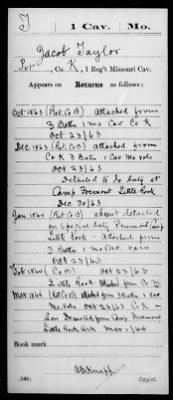 T | 1 Cav. | Mo.
Jacob Taylor
Pvt., Co. K, 1 Reg't Missouri Cav.
Appears on
Returns as follows:
Oct 1863 (Ret. Co B) attached from
3 Batn 1 Mo Cav Co K
Oct 23/63
Dec 1863 (Ret. Co B) attached from
Co K 3 Batn 1 Cav Mo Vols
Oct 23/63
Detailed to Go Duty at
Camp Fremont Little Rock
Dec 30/63
Jan 1864 (Ret. Co B) absent detailed
on Special Duty Fremont
Little Rock - Attached from
3 Batn 1 Mo Cav
Oct 23/63
Feb 1864 (Co B) Oct 23/63
Little Rock Attached from Co K
Mar 1864 (Ret Co B) attached from 3 Batn 1 Cav
Mo. Vols Oct 23/63 Co K
Deserted from Camp Fremont
Little Rock Ark Mar 1/64
Book mark
(546)
Copyist.